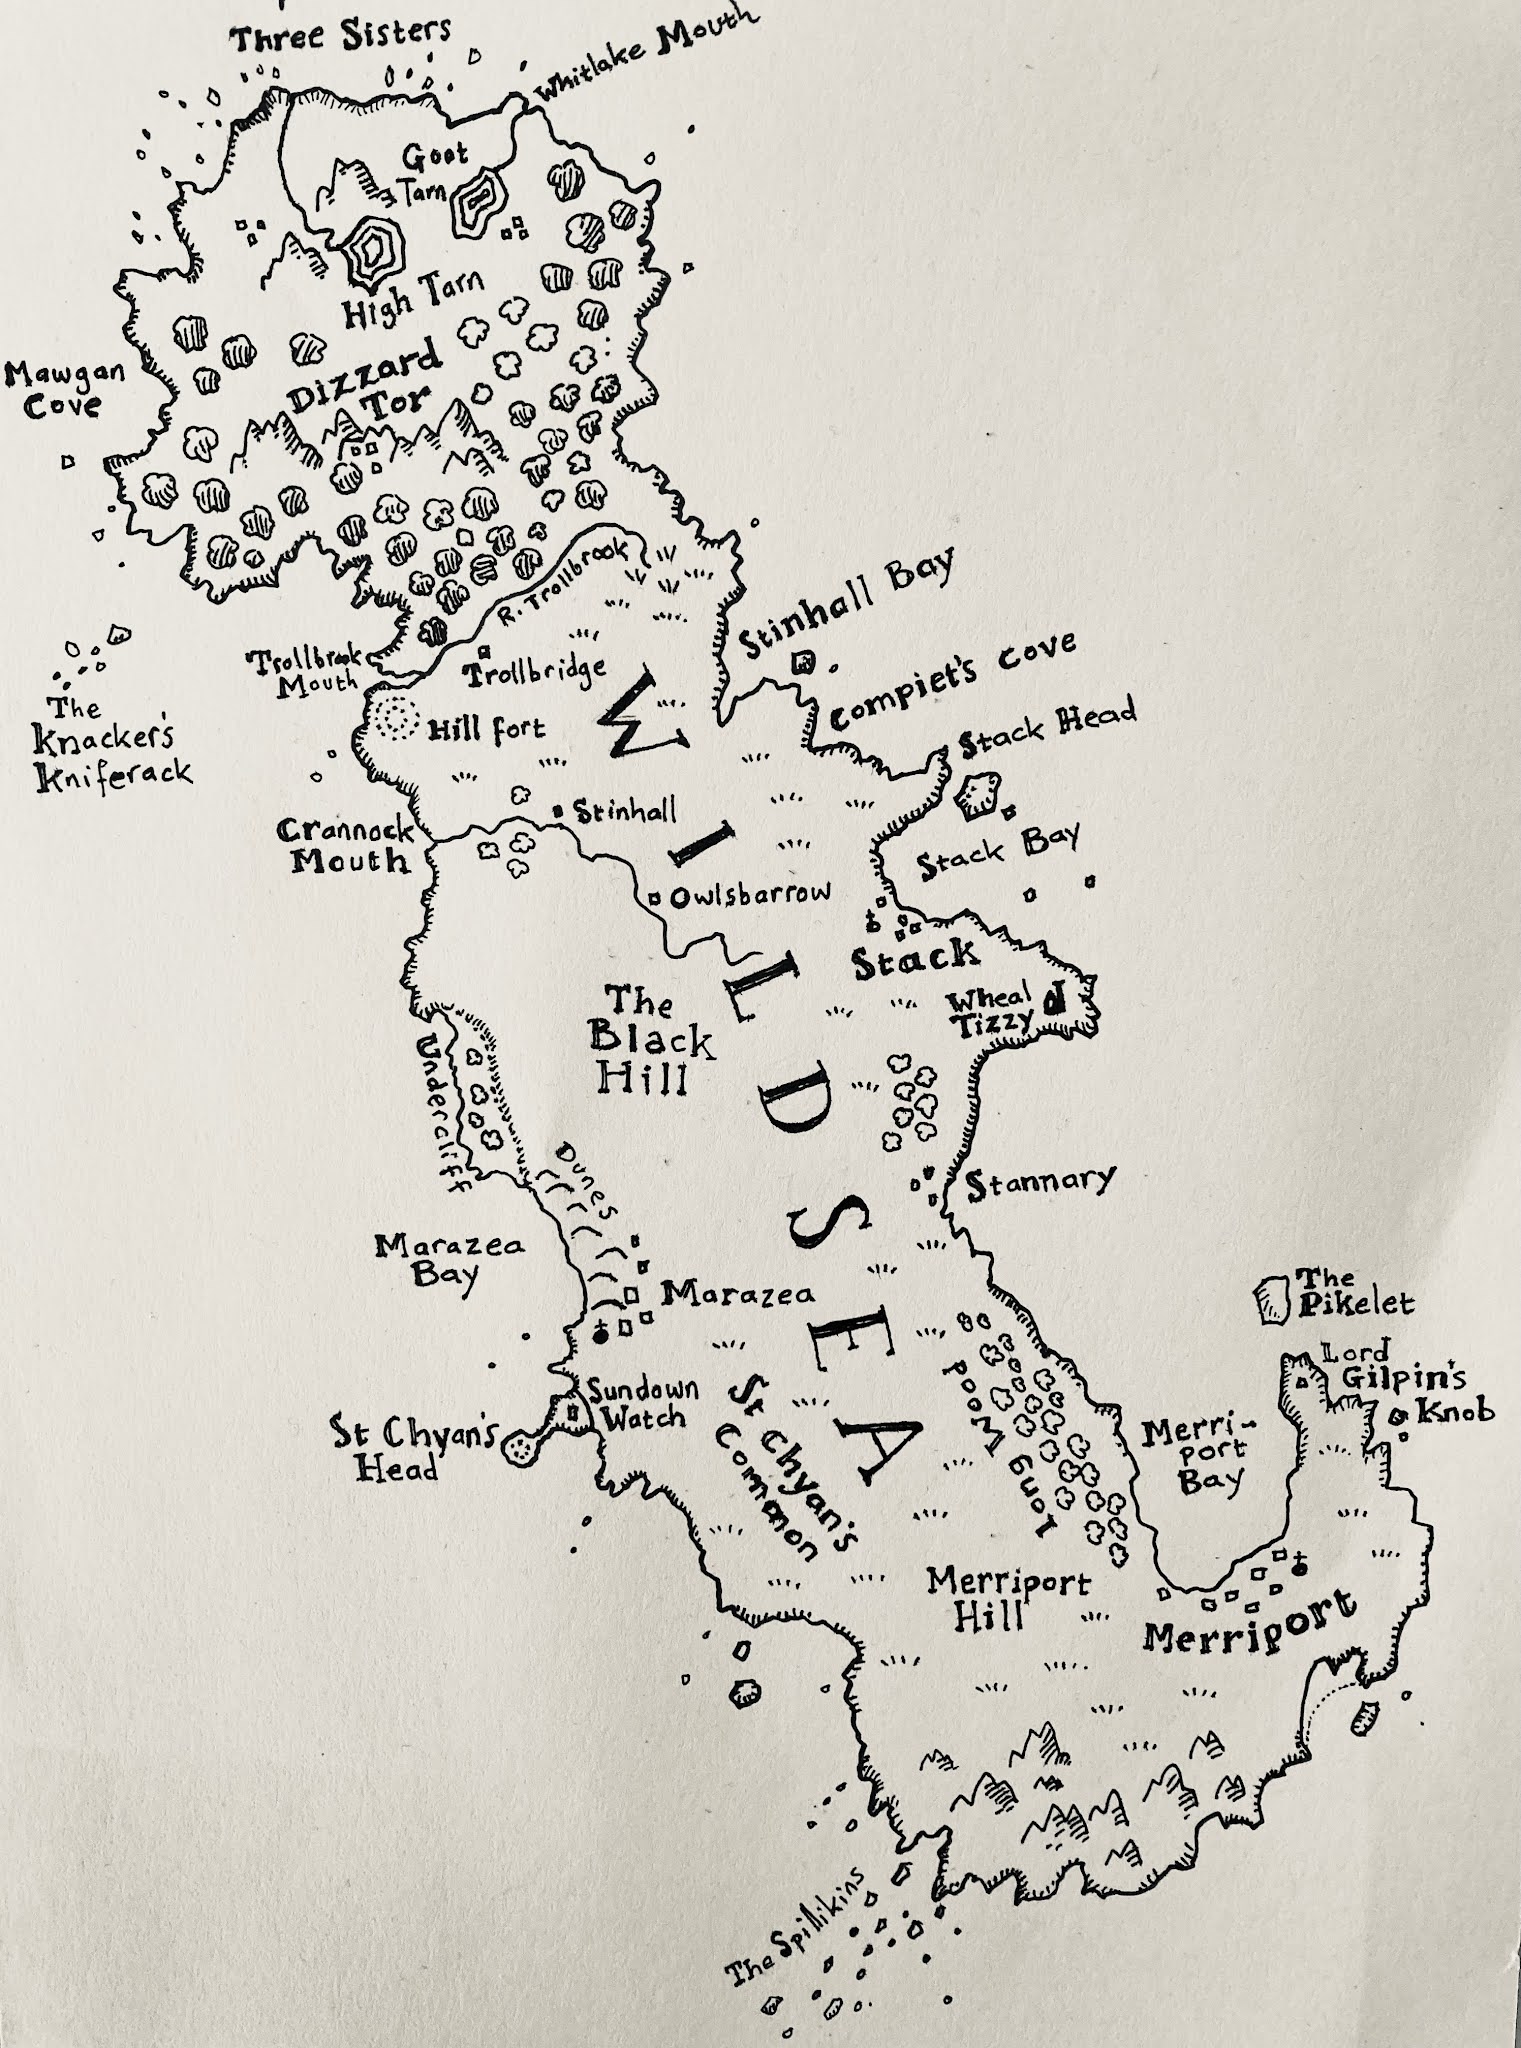 Three Sisters
Whitlake Mouth
Goat
Tarn
High Tarn
Mawgan
Cove
Dizzard
Tor
R. Trollbrook
Stinhall Bay
Trollbrook
Mouth
Trollbridge
Compiet's Cove
The
Knacker's
Kniferack
Hill fort
Stack Head
Crannock
Mouth
Stinhall
Stack Bay
Owlsbarrow
Stack
The
Black
Hill
Wheal
Tizzy
Undercliff
Dunes
Stannary
Marazea
Bay
Marazea
WILDSEA
The
Pikelet
Lord
Gilpin's
Knob
Sundown
Watch
St Chyan's
Head
St Chyan's
Common
Long Wood
Merri-
port
Bay
Merriport
Hill
Merriport
The Spillikins